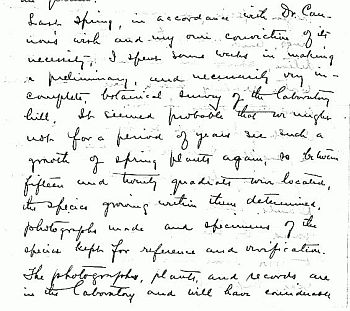 Last spring, in accordance with Dr. Can-
non's wish and my own conviction of its
necessity, I spent some weeks in making
a preliminary, and necessarily very in-
complete, botanical survey of the Laboratory
hill. It seemed probable that we might
not for a period of years see such a
growth of spring plants again, so between
fifteen and twenty quadrats were located,
the species growing within them determined,
photographs made and specimens of the
species kept for reference and verification.
The photographs, plants, and records are
in the Laboratory and will have considerable